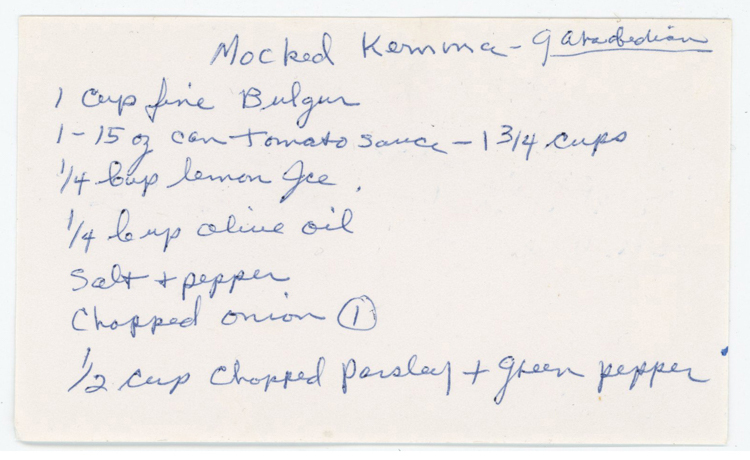 Mocked Kemma - G Arabedian
1 Cup fine Bulgur
1-15 oz can tomato sauce - 1 3/4 cups
1/4 cup lemon Jce.
1/4 cup olive oil
Salt + pepper
Chopped onion 1
1/2 cup Chopped Parsley + green pepper